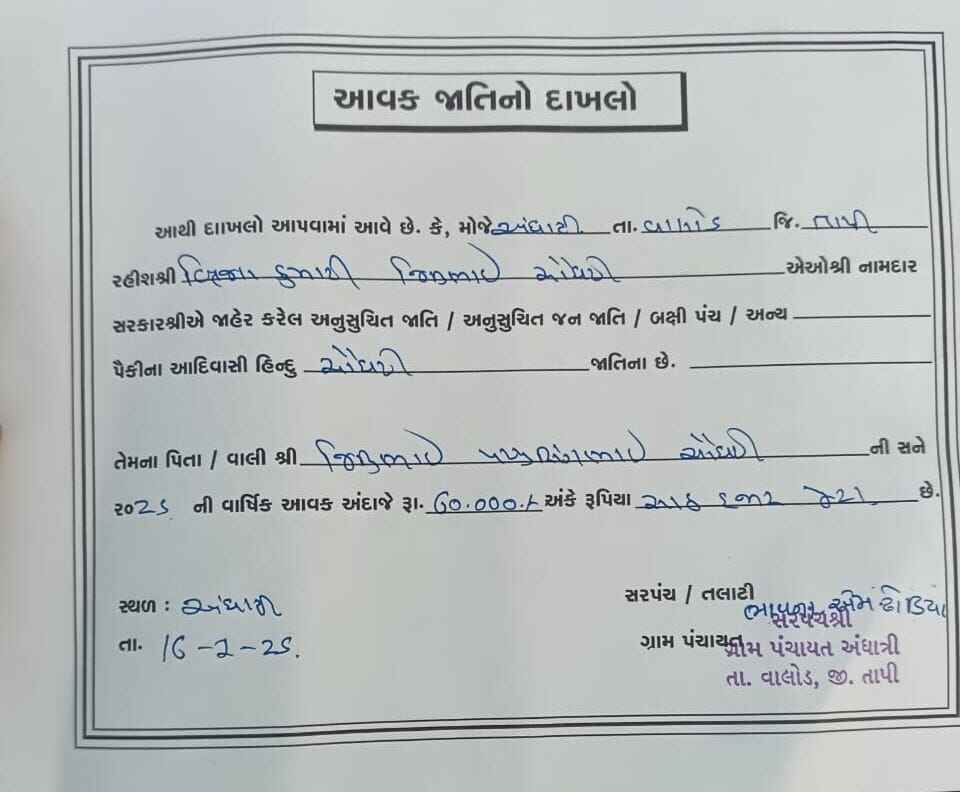 આવક જાતિનો દાખલો
આથી દાાખલો આપવામાં આવે છે. કે, મોજે અંધાત્રી તા. વાલોડ જિ. તાપી
રહીશશ્રી કુમારી ચૌધરી એઓશ્રી નામદાર
સરકારશ્રીએ જાહેર કરેલ અનુસુચિત જાતિ / અનુસુચિત જન જાતિ / બક્ષી પંચ / અન્ય
પૈકીના આદિવાસી હિન્દુ ચૌધરી જાતિના છે.
તેમના પિતા / વાલી શ્રી ચૌધરી ની સને
૨૦૨૬ ની વાર્ષિક આવક અંદાજે રૂા. 60.000./- અંકે રૂપિયા સાઠ હજાર પુરા છે.
સ્થળ : અંધાત્રી
સરપંચ / તલાટી
ભાવના એમ ઢોડિયા
સરપંચશ્રી
તા. 16-2-26.
ગ્રામ પંચાયત
ગ્રામ પંચાયત અંધાત્રી
તા. વાલોડ, જી. તાપી